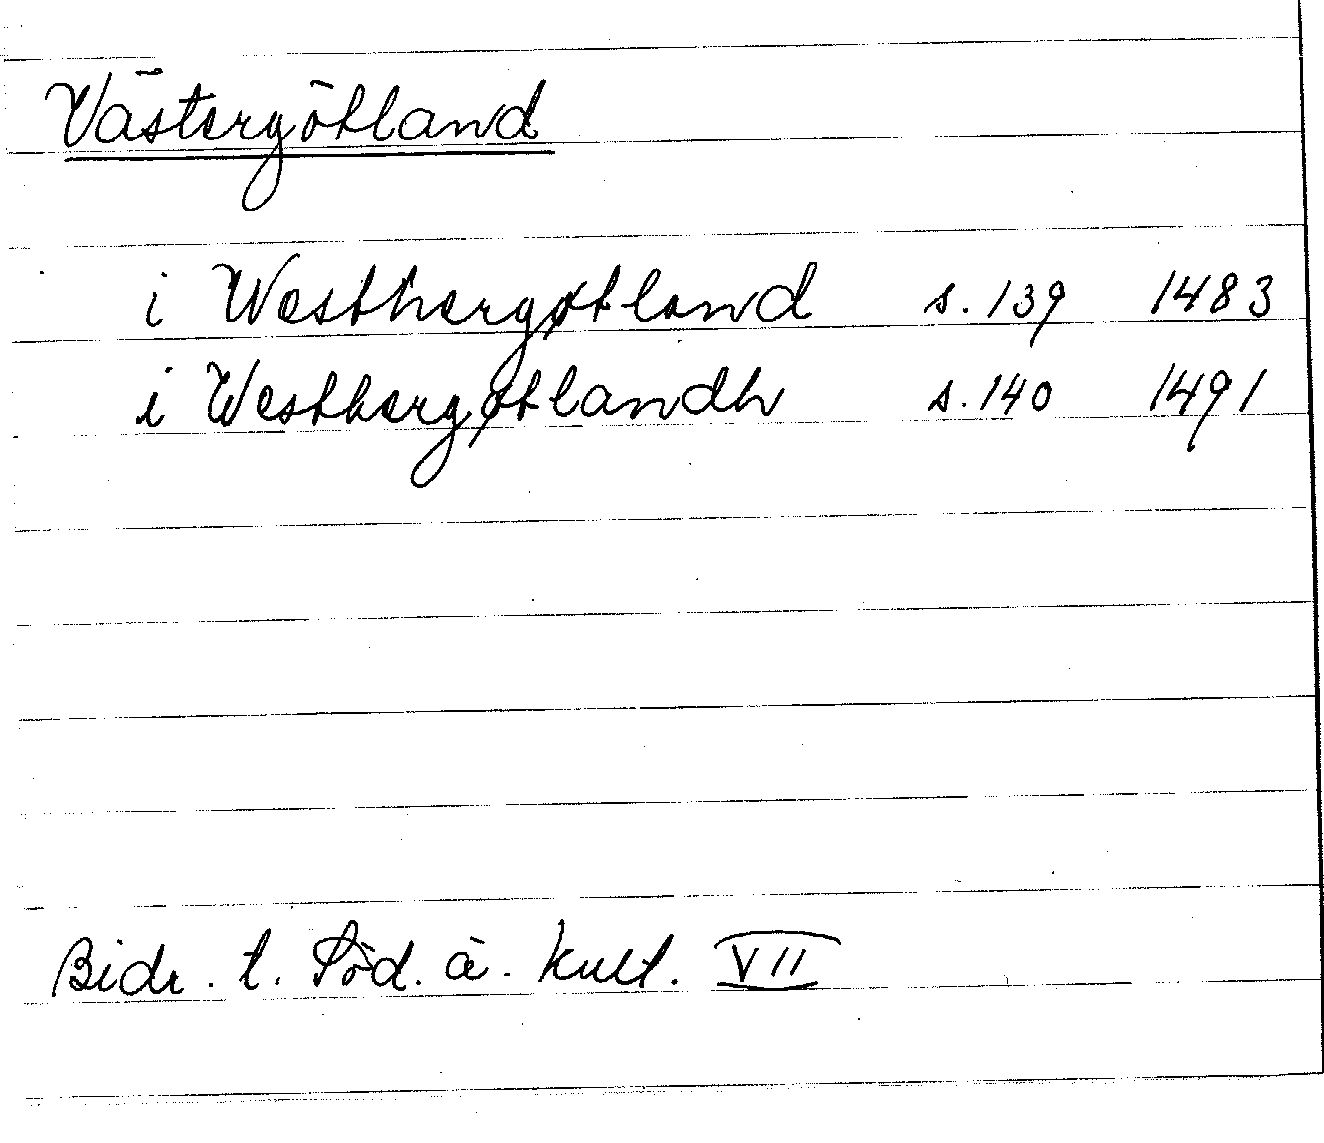 Västergötland
i Westhergøtland s. 139 1483
i Westhergøtlandh s. 140 1491
Bidr. t. Söd. ä. kult. VII